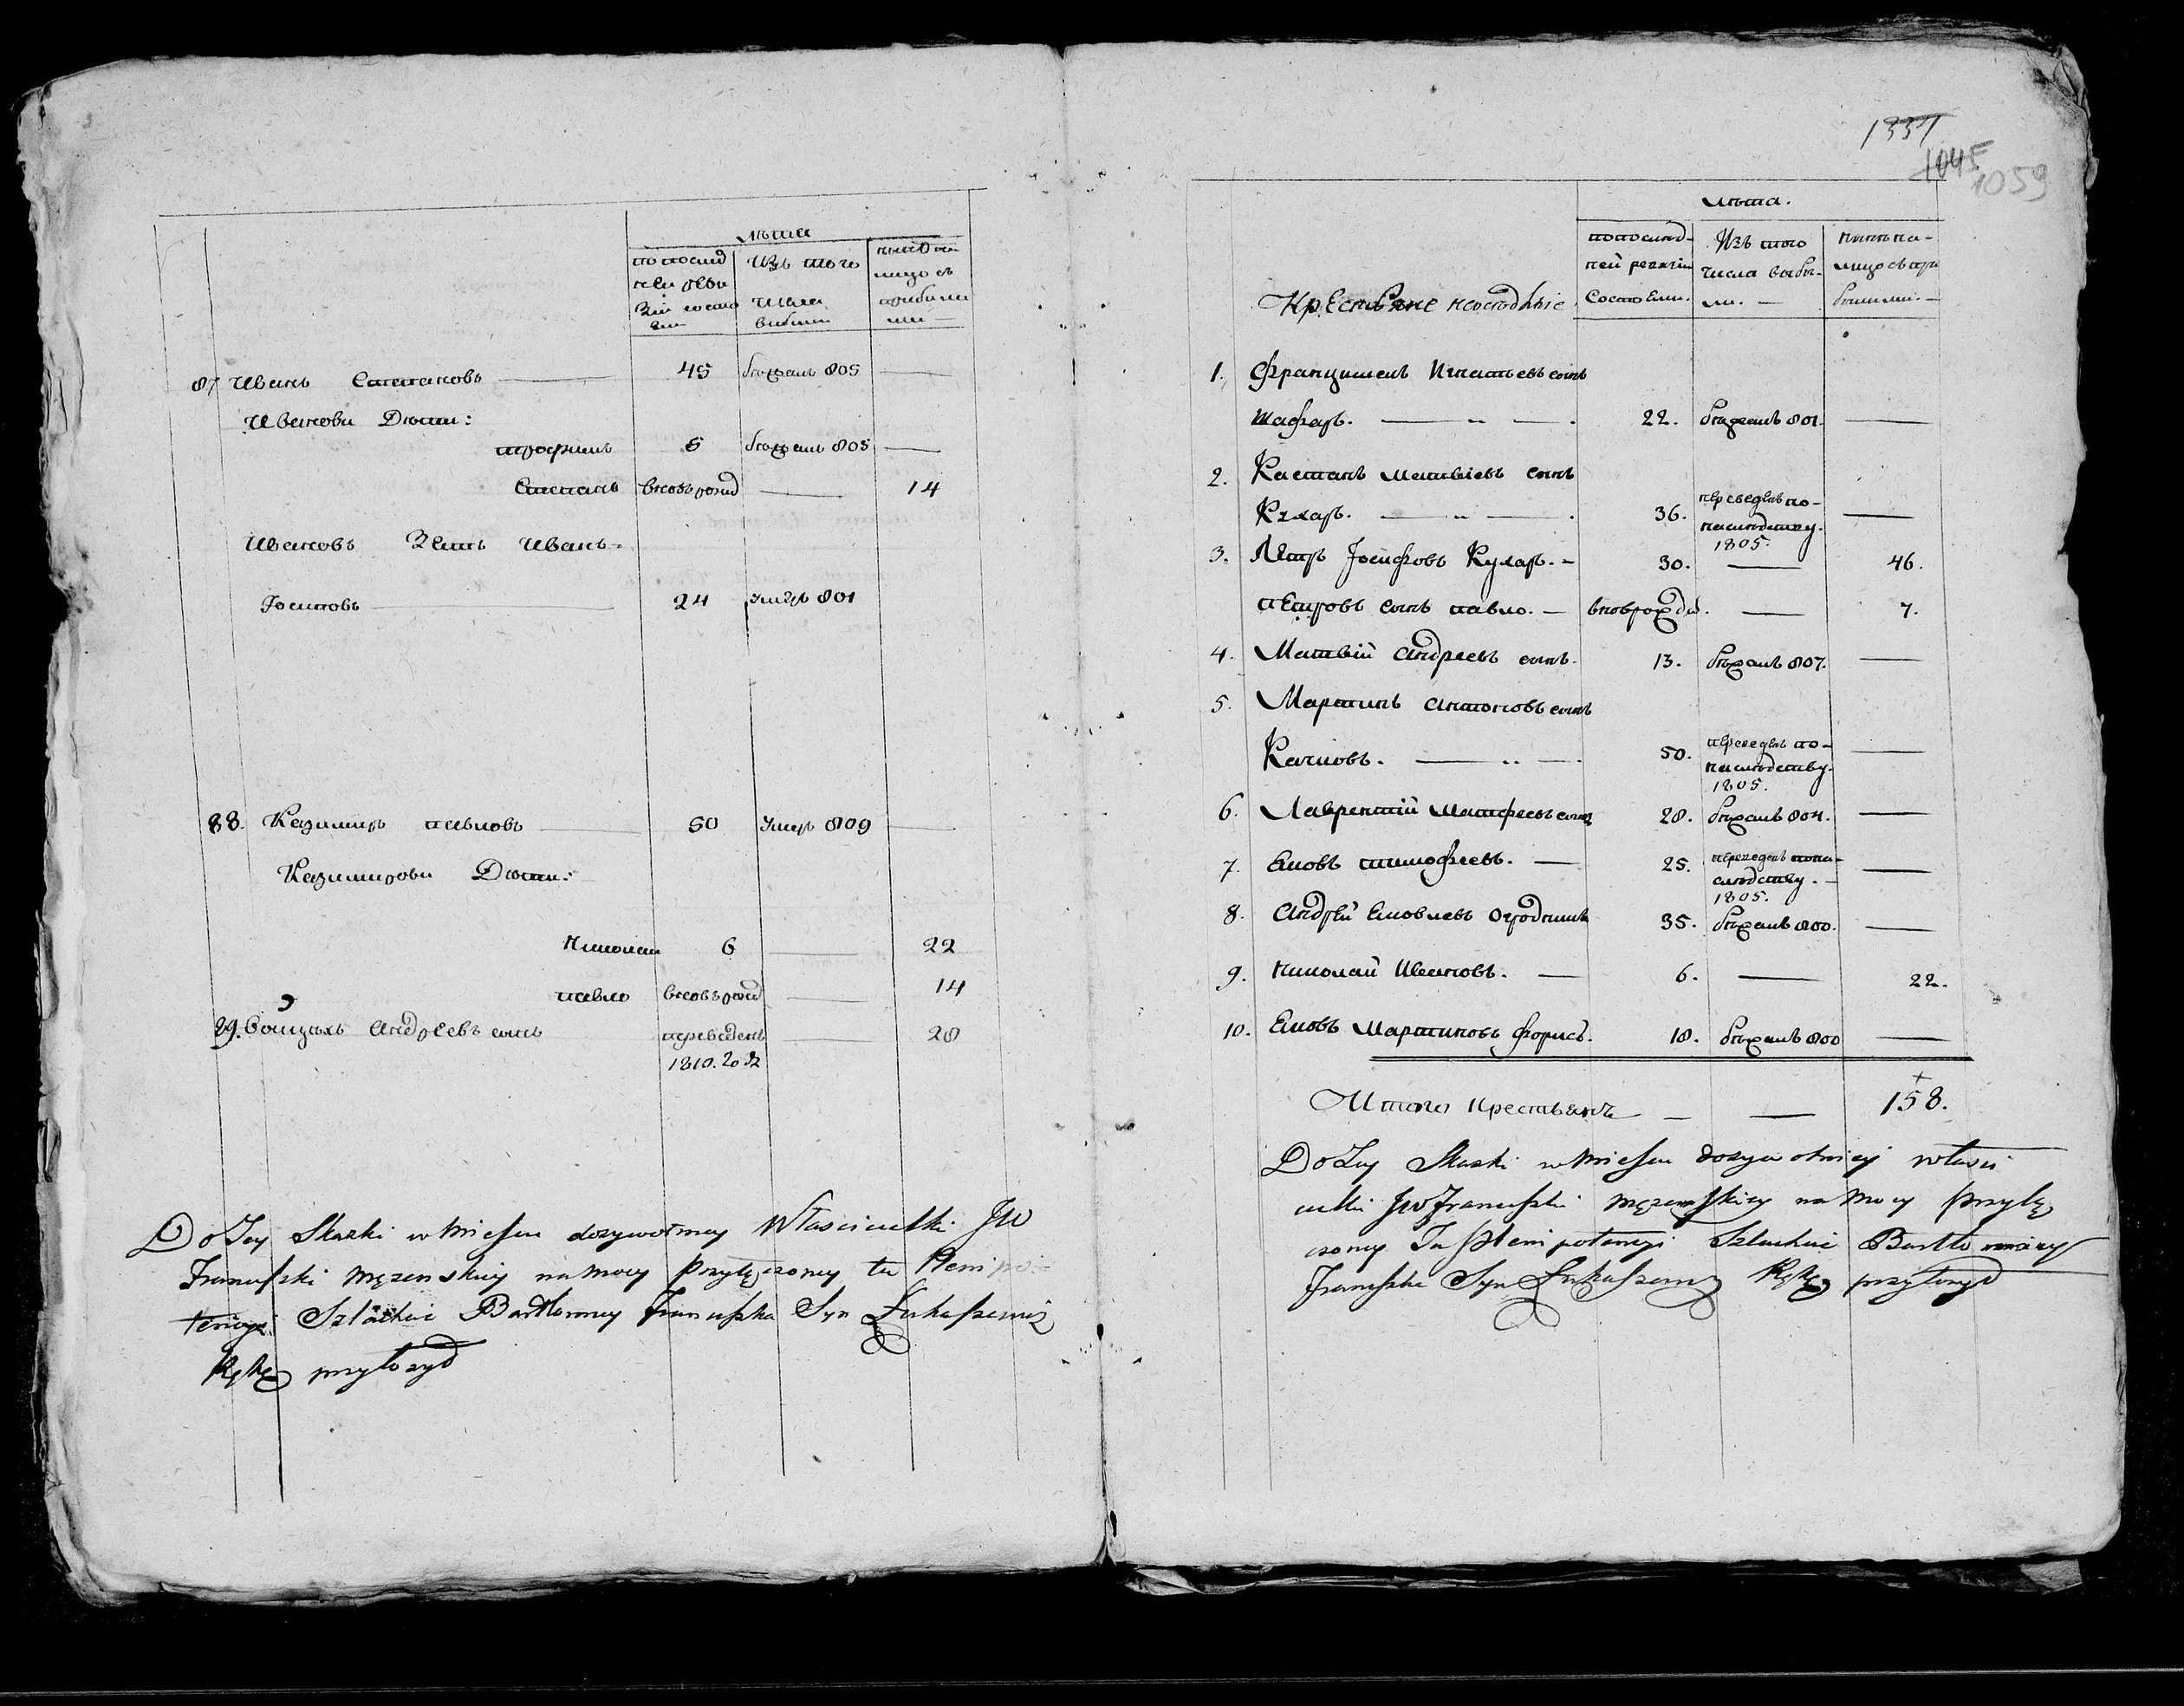 лѣта
по послѣд
ней реви
зіи состо
яли
Изъ того
числа
выбыли
ныне на
лицо съ
прибылы
ми —
87 Иванъ Степановъ — 45 бѣжалъ 805 —
Ивановы Дѣти:
трофимъ 6 бѣжалъ 805 —
Степанъ вновь рожд — 14
Ивановъ Зять Иванъ
Іосиповъ — 24 умеръ 801
88. Казимиръ павловъ — 50 умеръ 809 —
Казимировы Дѣти:
Николай 6 — 22
павло вновь рожд — 14
89. Войцѣхъ Андреевъ сынъ переведенъ — 28
1810. году
Do Tey Skazki w Miescu dozywotney Własciucielki JW
Franciszki Męzenskiey na Mocy przyłęczoney tu Plenipo
tencyi Szlachcic Bartłomiey Franciszka Syn Łukaszewicz
Rękę przyłozył
1337
1045
1059
лѣта.
по послѣд-
ней ревизіи
Состояли.
Изъ того
числа выбы-
ли. —
нынѣ на-
лицо съ при
былыми. —
Крестьяне неосѣдлые
1. Францишекъ Игнатьевъ сынъ
Шафаръ. — 22. бѣжалъ 801. —
2. Каетанъ Матвіевъ сынъ
Кухаръ. — 36. переведенъ по-
наслѣдству.
1805. —
3. Петръ Іосифовъ Кухаръ. — 30. — 46.
петровъ сынъ павло. — вновь рожд. — 7.
4. Матвій Андреевъ сынъ. 13. бѣжалъ 807. —
5. Мартинъ Антоновъ сынъ
50. переведенъ по-
наслѣдству.
1805. —
6. Лаврентій Матфеевъ сынъ 28. бѣжалъ 804. —
7. Яковъ тимофеевъ. — 25. переведенъ по на-
слѣдству. —
1805. —
8. Андрей Яковлевъ Огродникъ 35. бѣжалъ 800. —
9. Николай Ивановъ. — 6. — 22.
10. Яковъ Мартиновъ форисъ. 18. бѣжалъ 800 —
Итого крестьянъ — — 158.
Do Tey Skazki w Miescu dozywotniey własci
cielki JW Franciszki Męzenskiey na Mocy przyłę
czoney Tu Plenipotencyi Szlachcic Bartłomiey
Franciszka Syn Łukaszewicz Rękę przyłozył